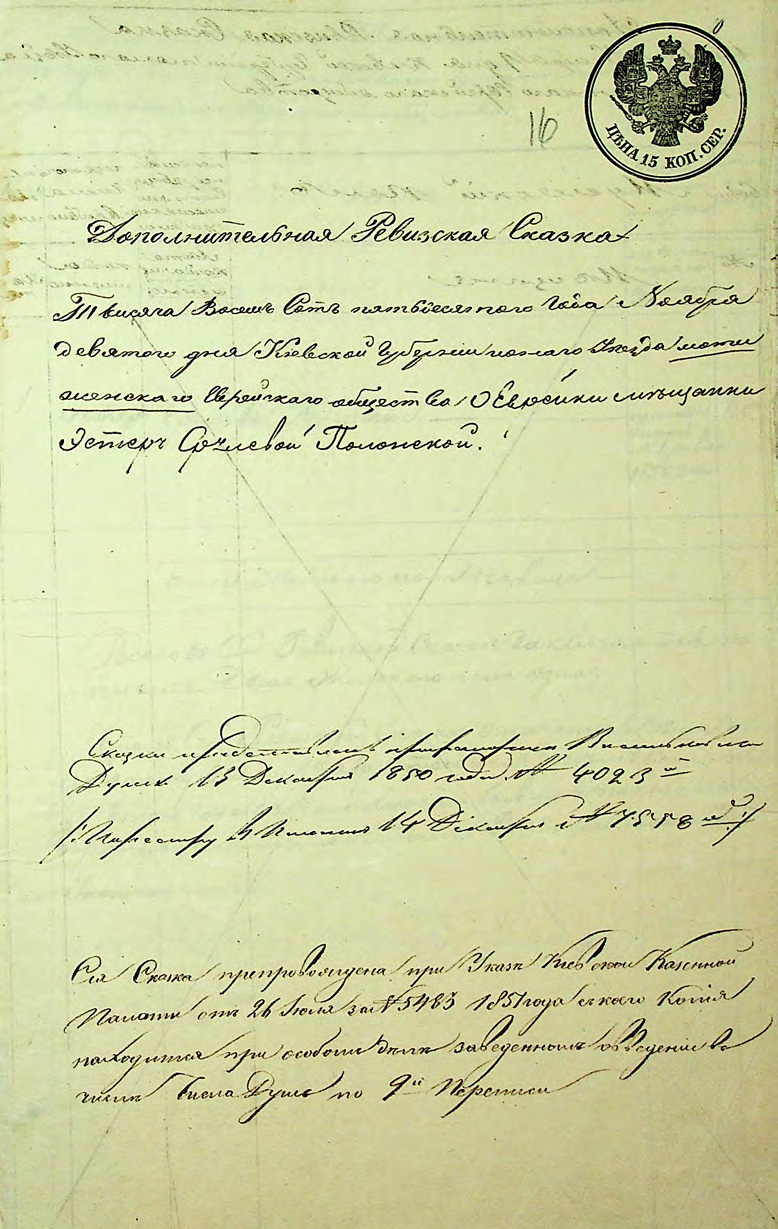 ЦѢНА 15 КОП. СЕР.
16
Дополнительная Ревизская Сказка
Тысяча Восемь Сотъ пятьдесятого Года Ноября
девятого дня Киевской Губернии Уезда
Еврейского общества, О Еврейки мѣщанки
Эстерѣ Срулевой Полонской.
Сказки при
Думѣ 13 Декабря 1850 года № 4023
14 Декабря № 7558
Сія Сказка препровождена при Указѣ Киевской Казенной
Палаты отъ 26 Июля за № 5483 1851 года съ коего Копія
находится при особомъ дѣлѣ заведенномъ о введеніи въ
число Душъ по 9й Переписи